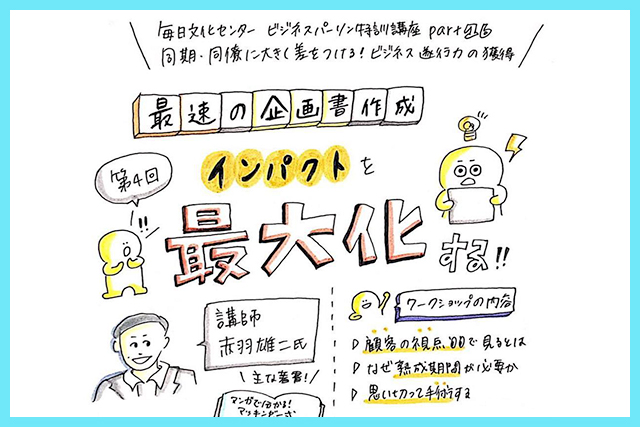 毎日文化センター ビジネスパーソン特訓講座 part
同期・同僚に大きく差をつける!ビジネス遂行力の獲得
最速の企画書作成
第4回
インパクトを
最大化する!!
講師
赤羽雄二氏
主な著書!
マンガで分かる!
ワークショップの内容
顧客の視点、目で見るとは
なぜ熟成期間が必要か
思い切って手術する